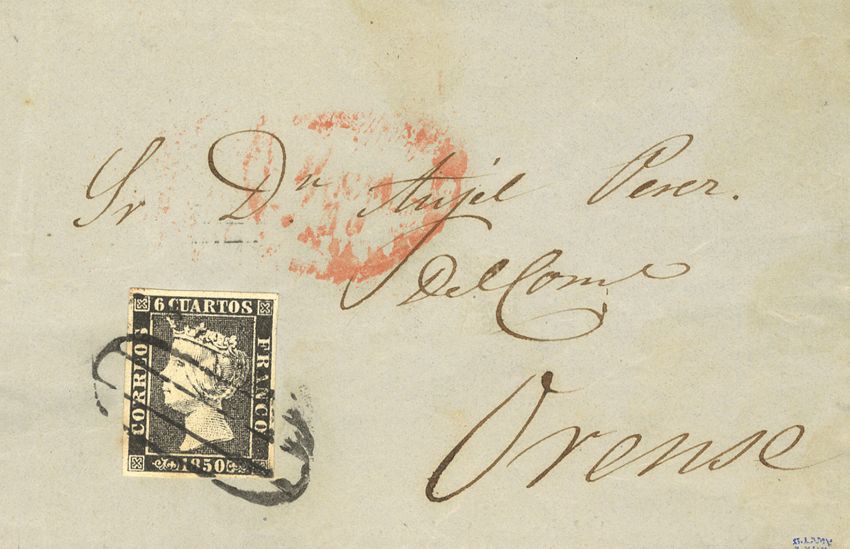 Sr Dn Anjel Perez.
Del Comº
Orense
6 CUARTOS
CORREOS
FRANCO
1850